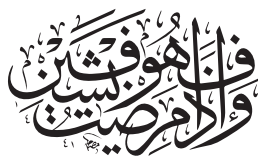 وإذا مرضت فهو يشفين